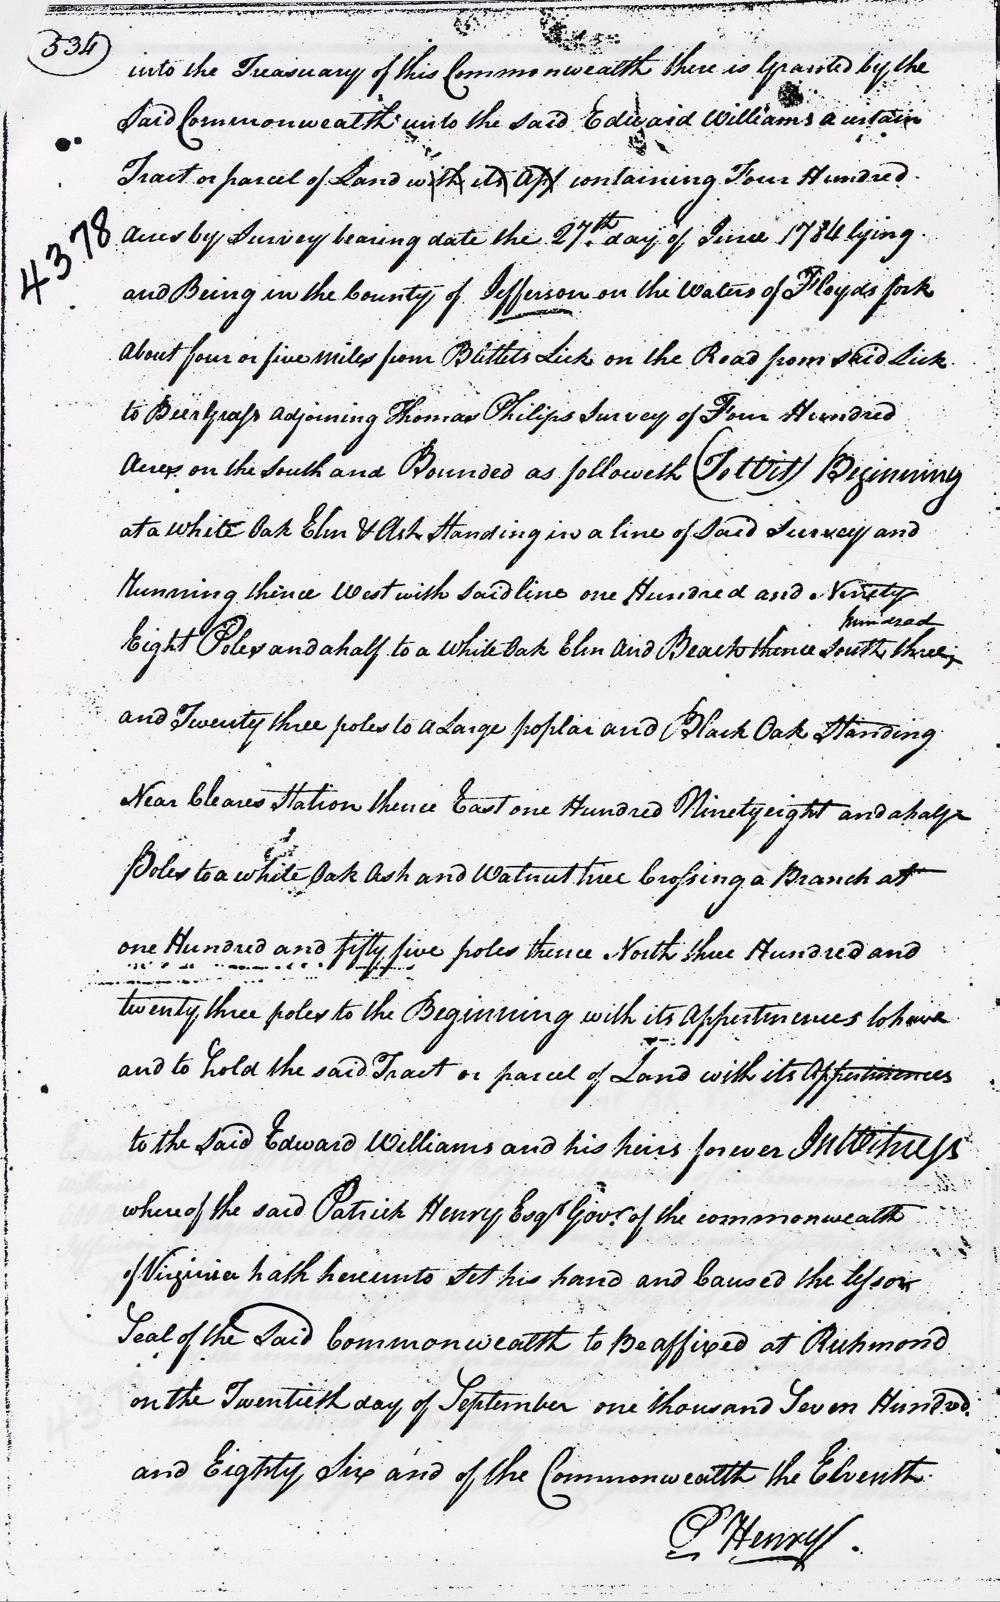 534
into the Treasuary of this Commonwealth there is Granted by the
Said Commonwealth unto the said Edward Williams a certain
Tract or parcel of Land with its Apt containing Four Hundred
Acres by Survey bearing date the 27th day of June 1784 lying
4378
and Being in the County of Jefferson on the Waters of Floyds fork
About four or five miles from Blittits Lick on the Road from said Lick
to BeerGrass adjoining Thomas Philips Survey of Four Hundred
Acres on the South and Bounded as followeth (To Wit) Beginning
at a White Oak Elm & Ash Standing in a line of Said Survey and
Running thence West with said line one Hundred and Ninety
hundred
Eight Poles and a half to a White Oak Elm And Beach thence South three
and Twenty three poles to a Large poplar and Black Oak Standing
Near Cleares Station thence East one Hundred Ninety eight and a half
Poles to a white Oak Ash and Walnut tree Crossing a Branch at
one Hundred and fifty five poles thence North three Hundred and
twenty three poles to the Beginning with its Appertinences to have
and to hold the said Tract or parcel of Land with its Appertinences
to the Said Edward Williams and his heirs forever In Witness
where of the said Patrick Henry Esqr Govr. of the commonwealth
of Virginia hath hereunto Set his hand and Caused the lessor
Seal of the Said Commonwealth to Be affixed at Richmond
on the Twentieth day of September one thousand Seven Hundred.
and Eighty Six and of the Commonwealth the Eleventh.
P Henry.